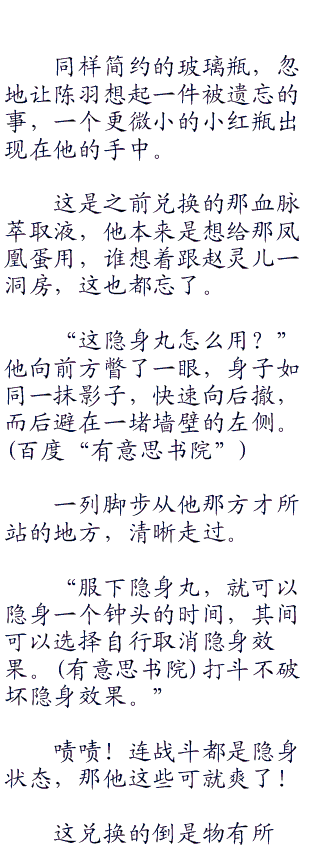 同样简约的玻璃瓶，忽
地让陈羽想起一件被遗忘的
事，一个更微小的小红瓶出
现在他的手中。
这是之前兑换的那血脉
萃取液，他本来是想给那凤
凰蛋用，谁想着跟赵灵儿一
洞房，这也都忘了。
“这隐身丸怎么用？”
他向前方瞥了一眼，身子如
同一抹影子，快速向后撤，
而后避在一堵墙壁的左侧。
(百度“有意思书院”)
一列脚步从他那方才所
站的地方，清晰走过。
“服下隐身丸，就可以
隐身一个钟头的时间，其间
可以选择自行取消隐身效
果。(有意思书院)打斗不破
坏隐身效果。”
啧啧！连战斗都是隐身
状态，那他这些可就爽了！
这兑换的倒是物有所